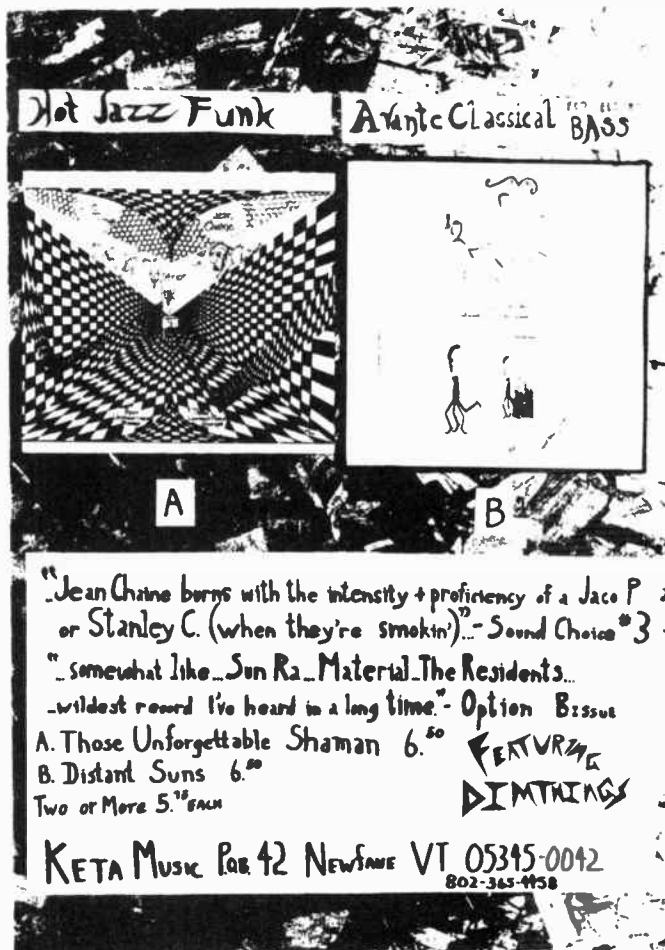 Hot Jazz Funk
Avante Classical BASS
A
B
"..Jean Chaine burns with the intensity + proficiency of a Jaco P
or Stanley C. (when they're smokin')"...- Sound Choice #3
"... somewhat like... Sun Ra... Material... The Residents...
...wildest record I've heard in a long time."- Option B issue
A. Those Unforgettable Shaman 6.50
B. Distant Suns 6.50
Two or More 5.75 EACH
FEATURING
DIMTHINGS
KETA MUSIC P.O.B. 42 NEWFANE VT 05345-0042
802-365-4458